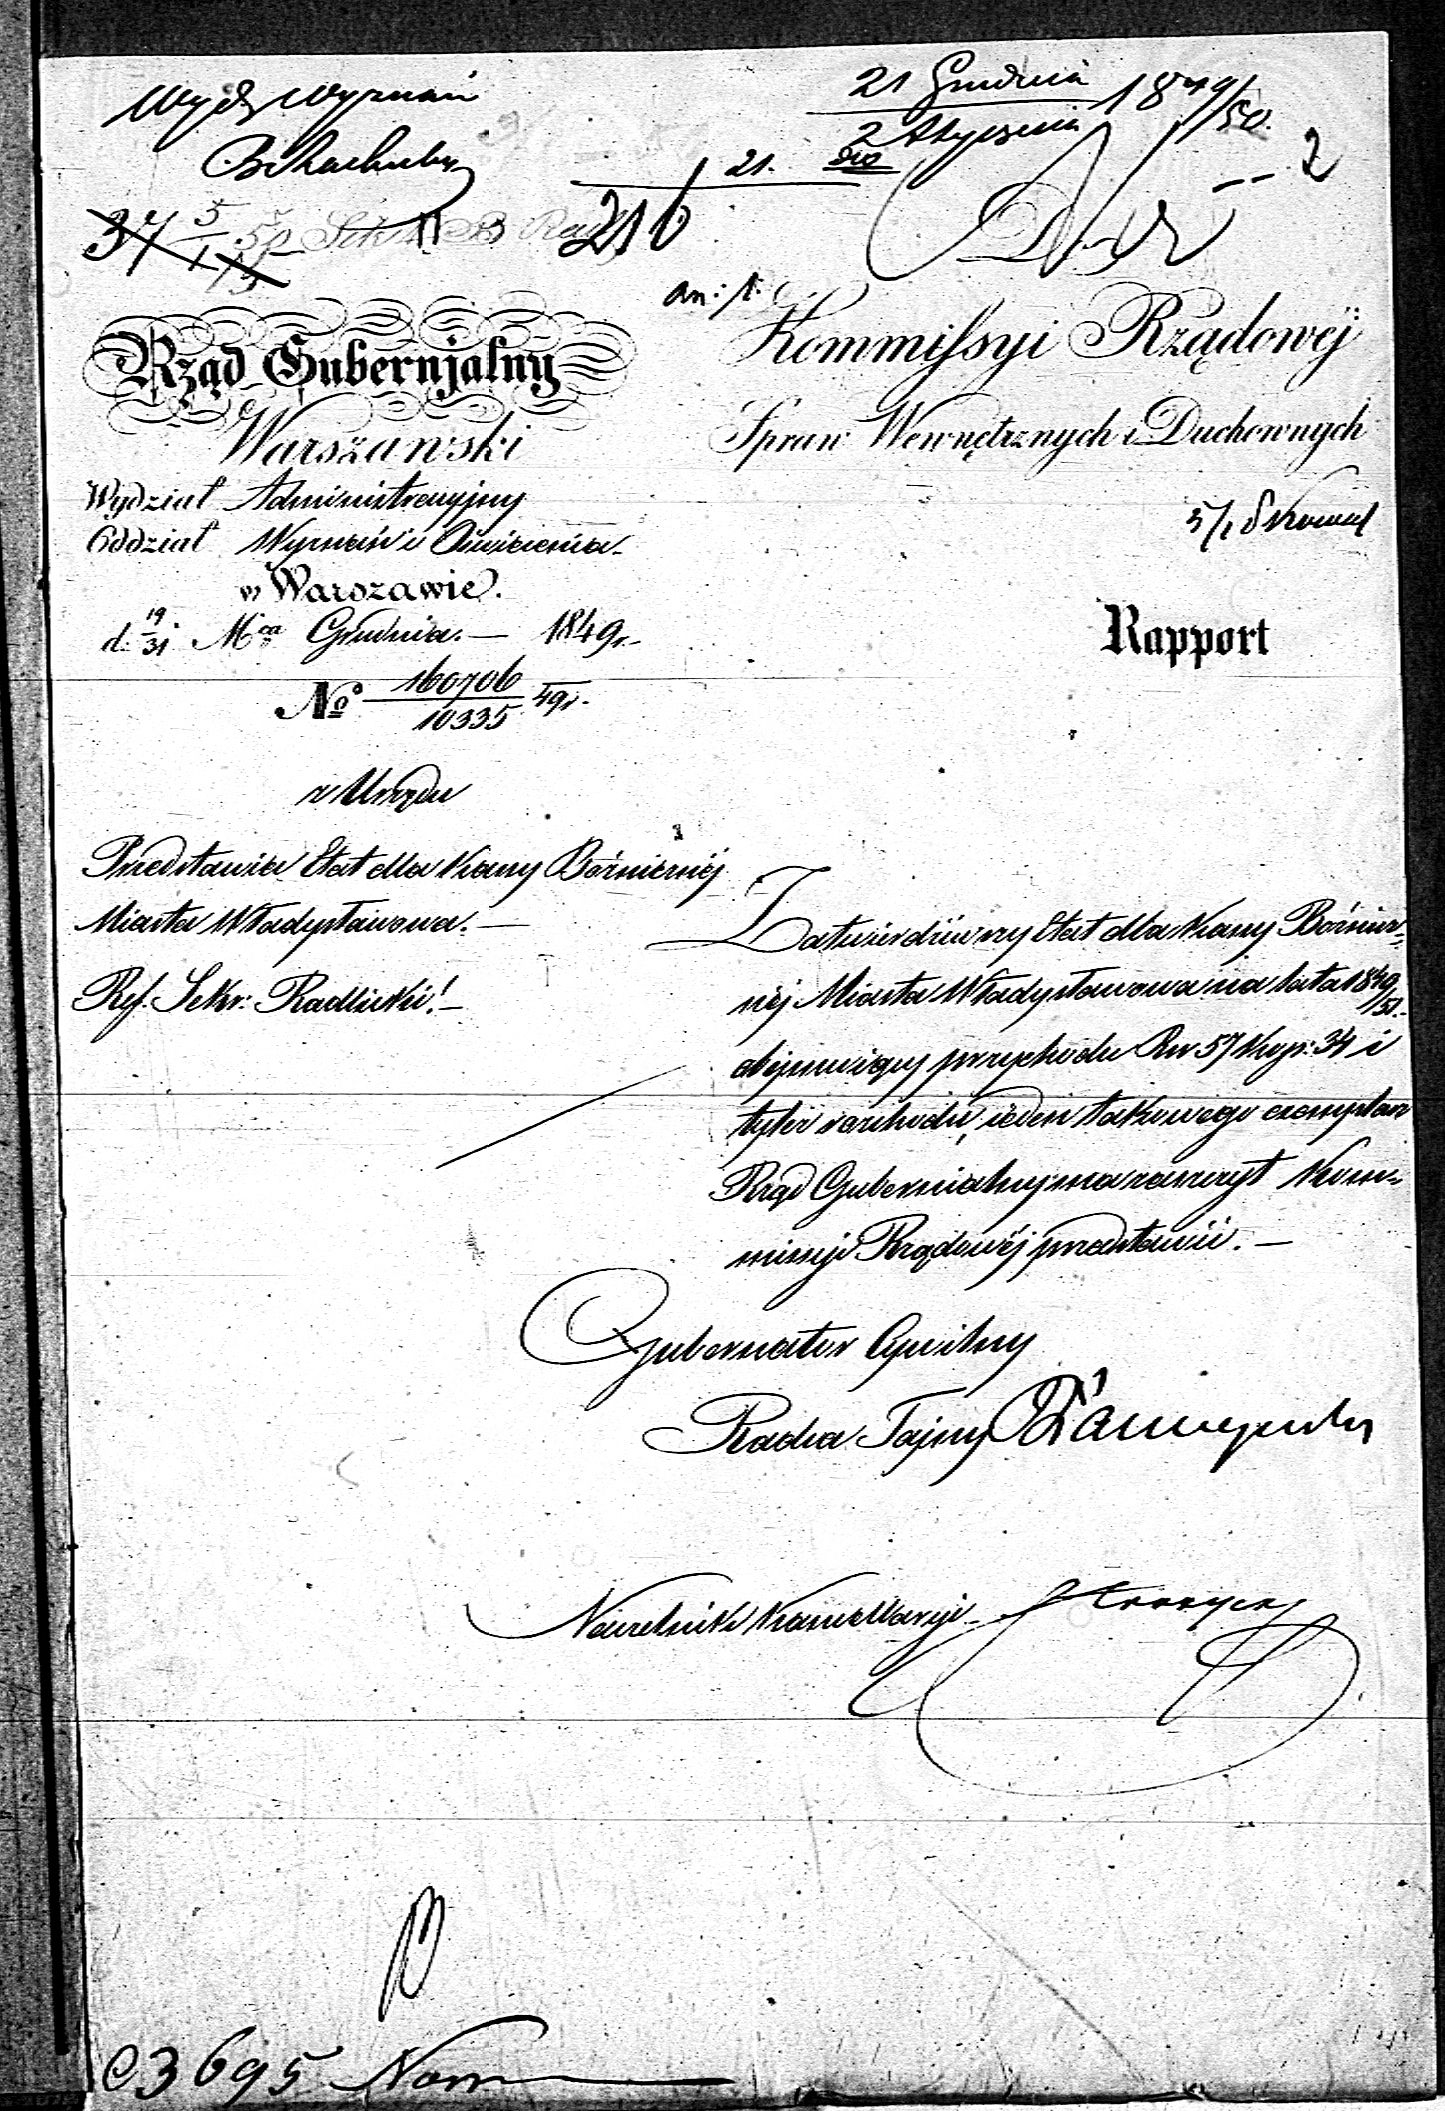 Wydz Wyznań
21 Grudnia
2 Stycznia 1849/50.
2
21.
37 5/1 50
216
an: 1.
Rząd Gubernjalny
Warszawski
Wydział Administracyjny
Oddział Wyznań i Oświecenia
w Warszawie.
d. 19/31 Mca Grudnia. — 1849r.
No 160706/10335 49r.
z Urzędu
Przedstawia Etat dla Kassy Bóżnicznéj
Miasta Władysławowa. —
Ref. Sekr: Radlicki! —
Kommissyi Rządowéj
Spraw Wewnętrznych i Duchownych
5/1
Rapport
Zatwierdziwszy Etat dla Kassy Bóżnicz-
néj Miasta Władysławowa na lata 1849/51.
obejmuiący przychodu Rsr 57 Kop: 34 i
tyleż rozchodu, ieden takowego exemplarz
Rząd Gubernialny ma zaszczyt Kom-
missyi Rządowéj przedstawić. —
Gubernator Cywilny
Radca Tajny
Naczelnik Kancellaryi
3695